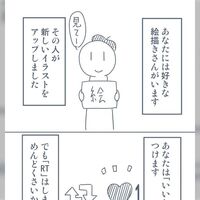 あなたには好きな
絵描きさんがいます
見て〜
絵
その人が
新しいイラストを
アップしました
あなたは「いい
つけます
1
でも「RT」はしま
めんどくさいか